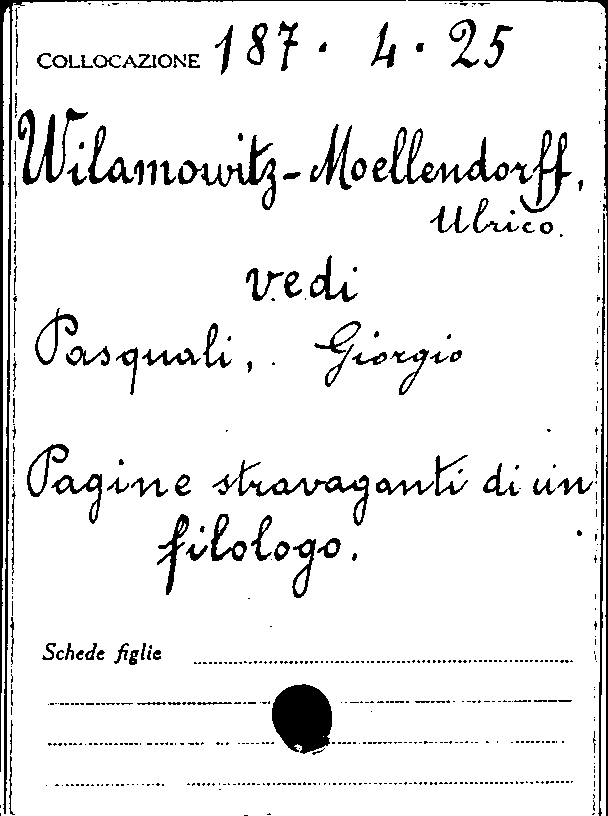 COLLOCAZIONE 187 · 4 · 25
Wilamowitz-Moellendorff,
Ulrico.
vedi
Pasquali, Giorgio
Pagine stravaganti di un
filologo.
Schede figlie